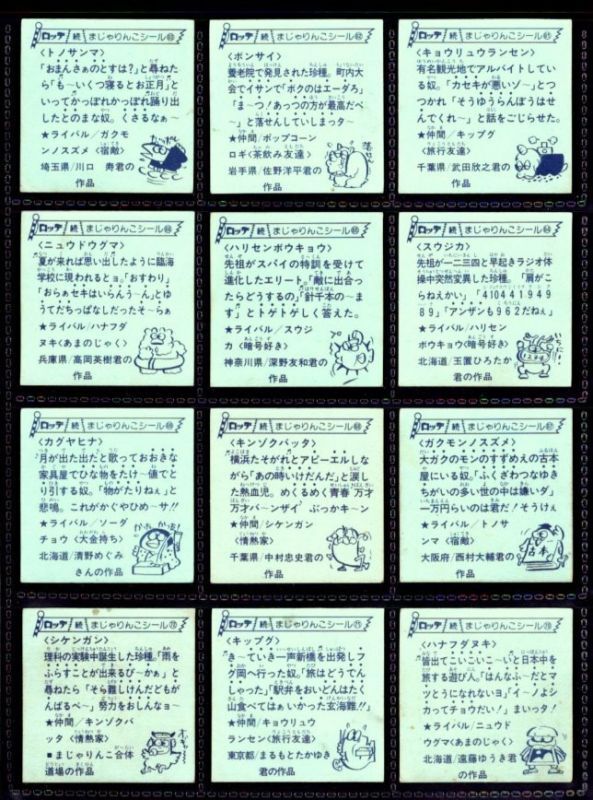 ロッテ 続 まじゃりんこシール
〈トノサンマ〉
「おまんさぁのとすは?」と尋ねた
ら「も〜いくつ寝るとお正月」と
いってかっぽれかっぽれ踊り出
したとのまな奴。くさるなぁ〜
★ライバル/ガクモ
ンノスズメ〈宿敵〉
埼玉県/川口 寿君の
作品
ロッテ 続 まじゃりんこシール
〈ボンサイ〉
養老院で発見された珍種。町内大
会でイサンで「ボクのはエーだろ」
「ま〜ツ!あっつの方が最高だべ
〜」と落せんしていしまっタ〜
★仲間/ポップコーン
ロギ〈茶飲み友達〉
岩手県/佐野洋平君の
作品
ロッテ 続 まじゃりんこシール
〈キョウリュウランセン〉
有名観光地でアルバイトしてい
る奴。「カセキが悪いゾ〜」とつ
つかれ「そうゆうらんぼうはせ
んでくれ〜」と話をこじらせた。
★仲間/キップグ
〈旅行友達〉
千葉県/武田欣之君の
作品
ロッテ 続 まじゃりんこシール
〈ニュウドウグマ〉
夏が来れば思い出したように臨海
学校に現われるとョ。「おすわり」
「おらぁセキはいらんう〜ん」とゆ
うてだちっぱなしだったそ〜らぁ
★ライバル/ハナフダ
ヌキ〈あまのじゃく〉
兵庫県/高岡英樹君の
作品
ロッテ 続 まじゃりんこシール
〈ハリセンボウキョウ〉
先祖がスパイの特訓を受けて
進化したエリート。「敵に出合っ
たらどうするの」「針千本の〜ま
す」とトゲトゲしく答えた。
★ライバル/スウジ
カ〈暗号好き〉
神奈川県/深野友和君の
作品
ロッテ 続 まじゃりんこシール
〈スウジカ〉
先祖が一二三四と早起きラジオ体
操中突然変異した珍種。「肩がこ
らねえかい」「410441949
89」「アンザンも962だねえ」
★ライバル/ハリセン
ボウキョウ〈暗号好き〉
北海道/玉置ひろたか
君の作品
ロッテ 続 まじゃりんこシール
〈カグヤヒナ〉
「月が出た出たと歌っておおきな
家具屋でひな物をたけ〜値でと
り引する奴。「物がたりねぇ」と
悲鳴。これがかぐやひめ〜サ!!
★ライバル/ソーダ
チョウ〈大金持ち〉
北海道/清野めぐみ
さんの作品
ロッテ 続 まじゃりんこシール
〈キンゾクバッタ〉
横浜たそがれとアピーエルしな
がら「あの時いけだんだ」と涙し
た熱血児。めくるめく青春 万才
万才バ〜ンザイ ぶっかキ〜ン
★仲間/シケンガン
〈情熱家〉
千葉県/中村忠史君の
作品
ロッテ 続 まじゃりんこシール
〈ガクモンノスズメ〉
大ガクのモンのすずめえの古本
屋にいる奴。「ふくざわつなゆき
ちがいの多い世の中は嫌いダ」
一万円らいのは君だ!そうけぇ
★ライバル/トノサ
ンマ〈宿敵〉
大阪府/西村大輔君の
作品
ロッテ 続 まじゃりんこシール
〈シケンガン〉
理科の実験中誕生した珍種。「雨を
ふらすことが出来るび〜かぁ」と
尋ねたら「そら難しけんだどもが
んばるべ〜」努力をおしんなョ〜
★仲間/キンゾクバ
ッタ〈情熱家〉
■まじゃりんこ合体
道場の作品
ロッテ 続 まじゃりんこシール
〈キップグ〉
き〜ていき一声新橋を出発しフ
グ岡へ行った奴。「旅はどうでん
しゃった」「駅弁をおいどんはたく
山食べてはぁいかった玄海難!!」
★仲間/キョウリュウ
ランセン〈旅行友達〉
東京都/まるもとたかゆき
君の作品
ロッテ 続 まじゃりんこシール
〈ハナフダヌキ〉
皆出てこいこいこ〜いと日本中を
旅する遊び人。「はんなふ〜だとマ
ツとうになれないヨ」「イ〜ノよシ
カってチョウだい!」まいッタ!
★ライバル/ニュウド
ウグマ〈あまのじゃく〉
北海道/遠藤ゆうき君
の作品